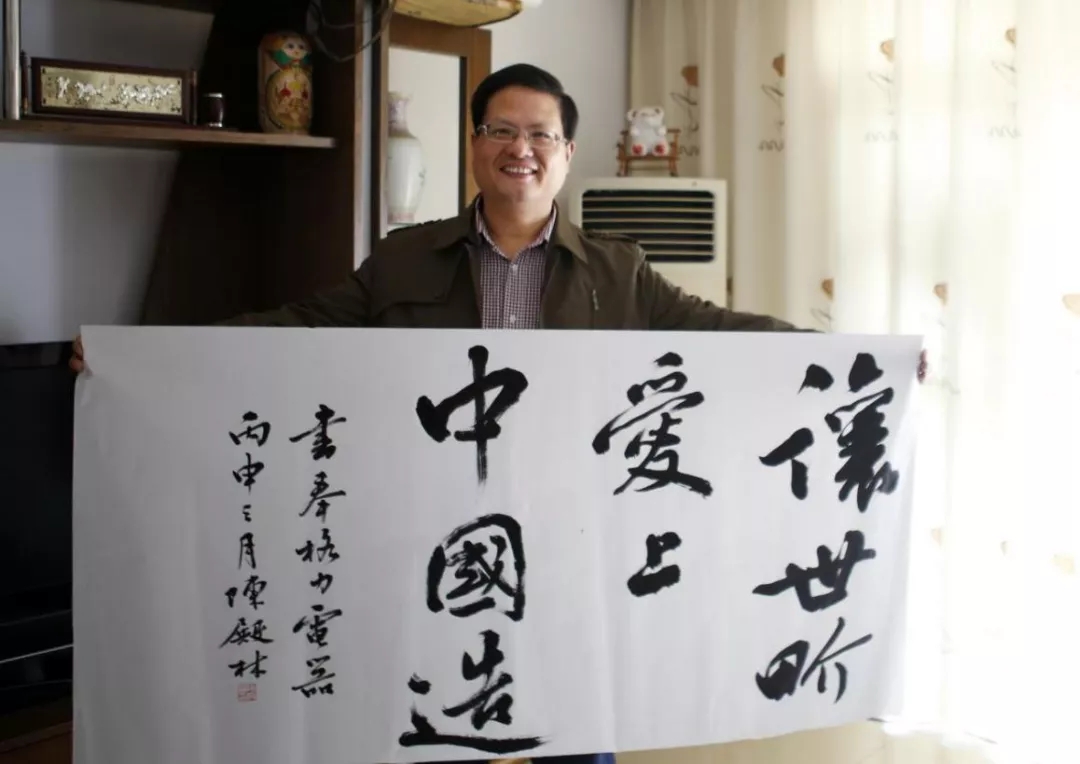 讓世畍
愛上
中國造
書奉格力電器
丙申三月陳殿林